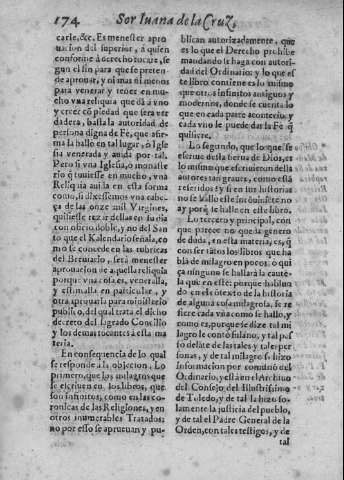 174 Sor Iuana de la Cruz,
carse, &c. Es menester apro
uacion del superior, à quien
conforme à derecho tocare, se
gun el fin para que se preten-
de aprouar, y ni mas ni menos
para venerar y tener en mu-
cho vna reliquia que dà à vno
y creer cō piedad que sea ver
dadera, basta la autoridad de
persona digna de Fè, que afir-
ma la hallo en tal lugar, ò Igle
sia venerada y auida por tal.
Pero si vna Iglesia, ò monaste
rio q̄ tuuiesse en mucho, vna
Reliquia auida en esta forma
como, si dixessemos vna cabe-
ça de las onze mil Virgines,
quisiesse rezar della en su dia
con oficio doble, y no del San
to que el Kalendario señala, co
mo se concede en las rubricas
del Breuiario, serà menester
aprouacion de aquella reliquia
porque vna cosa es, venerarla,
y estimarla en particular, y
otra aprouarla para ministerio
publico, del qual trata el dicho
decreto del sagrado Concilio
y los demas tocantes à esta ma
teria.
En consequencia de lo qual
se responde a la objecion. Lo
primero, que los milagros que
se escriuen en, los libros, que
son infinitos, como en las co-
ronicas de las Religiones, y en
otros innumerables Tratados;
no por esso se aprueuan y pu-
blican autorizadamente, que
es lo que el Derecho prohibe
mandando se haga con autori-
dad del Ordinario; y lo que es
te libro contiene es lo mismo
que otros infinitos antiguos y
modernos, donde se cuenta lo
que en cada parte acontecio, y
cada vno le puede dar la Fè q̄
quisiere.
Lo segundo, que lo que se
escriue desta sierua de Dios, es
lo mismo que escriuieron della
autores tan graues, como estã
referidos y si en sus historias
no se hallò esse incōuiniēte no
ay porq̄ se halle en este libro.
Lo tercero y principal, con
que parece no queda genero
de duda, en esta materia, es, q̄
con ser tātos los libros que ha
blā de milagros en pocos, ò qui
ça ninguno se hallarà la caute-
la que en este: porque hablan
do en el contexto de la historia
de alguna cosa milagrosa, se re
fiere cada vna como se hallo, y
como es, porque se dize tal mi
lagro le contò fulano, y tal pas
so delāte de las tales y tales per
sonas, y de tal milagro se hizo
informacion por comission del
Ordinario, y està en el Archiuo
del Consejo, del Illustrissimo
de Toledo, y de tal la hizo so-
lamente la justicia del pueblo,
y de tal el Padre General de la
Orden, con tales testigos, y de
tal